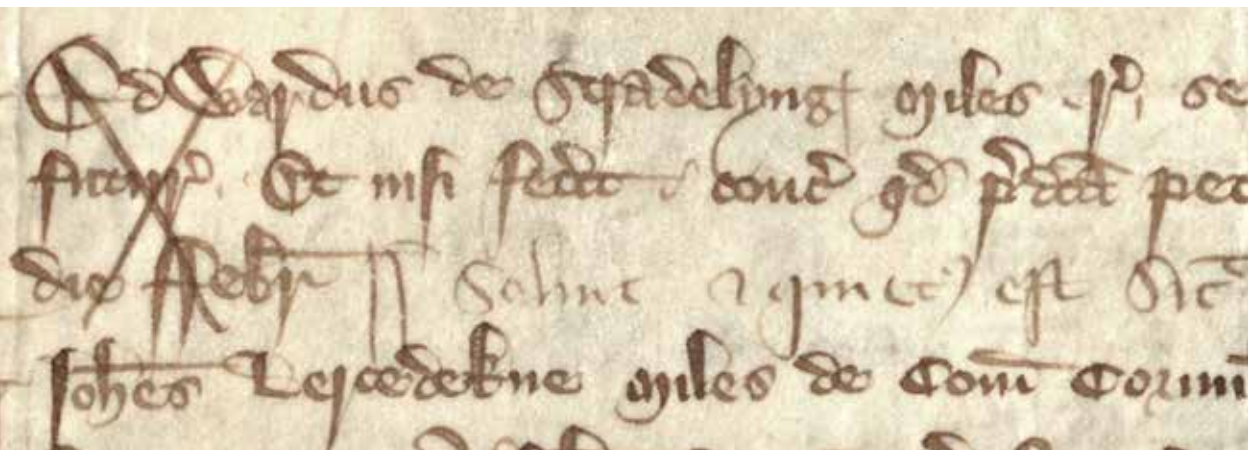 Edwardus de Stradelyng miles r' se
futur'. Et nisi fec'it conc' qd p'dict pec
die Febr' Soluit & quiet' est sic
Joh'es Lercedekne miles de Com' Cornu